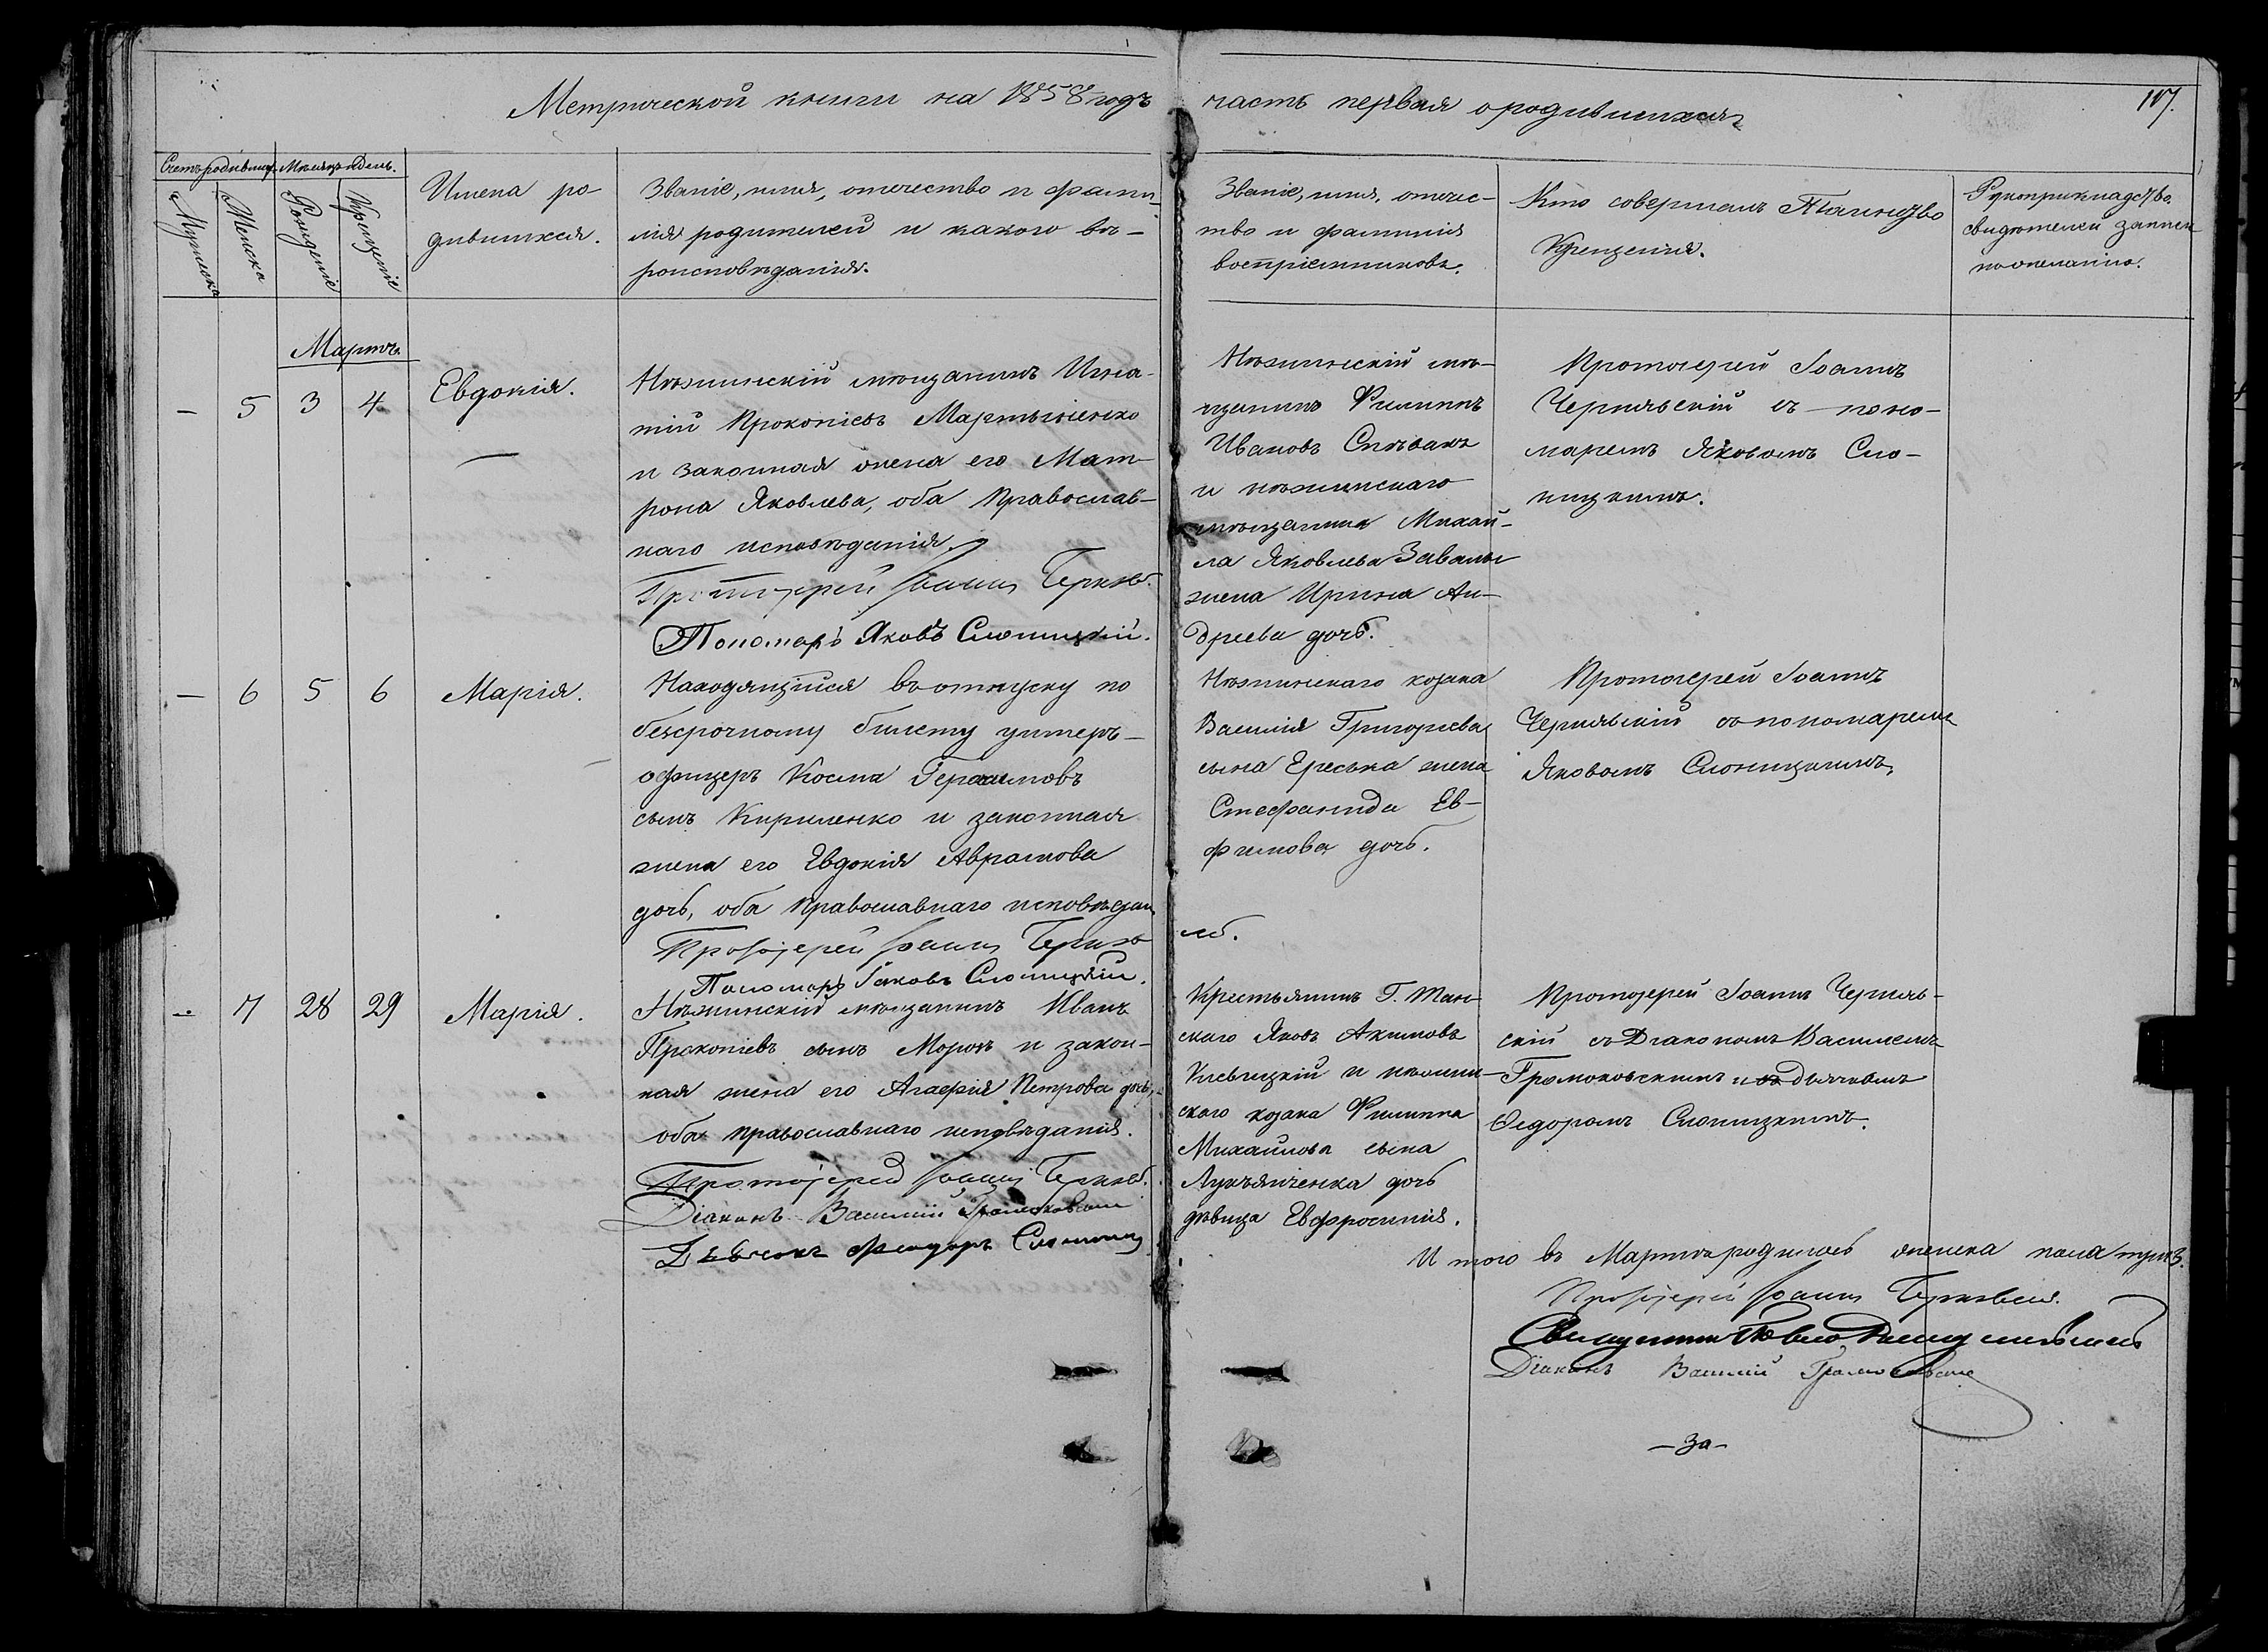 Метрической книги на 1858 годъ часть первая о родившихся
117.
Счетъ родивших. Мѣсяцъ и день.
Мужеска
Женска
Рожденіе
Крещеніе
Имена ро-
дившихся.
Званіе, имя, отчество и фами-
лія родителей и какого вѣ-
роисповѣданія.
Званіе, имя, отчес-
тво и фамилія
воспріемниковъ.
Кто совершалъ Таинство
Крещенія.
Рукоприкладство
свидѣтелей записи
по желанію.
Мартъ
— 5 3 4 Евдокія.
Нѣжинскій мѣщанинъ Игна-
тій Прокопіевъ Мартыненко
и законная жена его Мат-
рона Яковлева, оба Православ-
наго исповѣданія.
Протоіерей Іоаннъ Черняв.
Пономаръ Яковъ Слоницкій.
Нѣжинскій мѣ-
щанинъ Филиппъ
Ивановъ Спѣвакъ
и нѣжинскаго
мѣщанина Михай-
ла Яковлева Завалы
жена Ирина Ан-
дреева дочь.
Протоіерей Іоаннъ
Чернявскій съ поно-
маремъ Яковомъ Сло-
ницкимъ.
— 6 5 6 Марія.
Находящійся въ отпуску по
безсрочному билету унтеръ-
офицеръ Косма Герасимовъ
сынъ Кириленко и законная
жена его Евдокія Аврамова
дочь, оба православнаго исповѣдан
Протоіерей Іоаннъ Черняв
Пономаръ Іаковъ Слоницкій.
Нѣжинскаго козака
Василія Григоріева
сына Ереська жена
Стефанида Ев-
фимова дочь.
Протоіерей Іоаннъ
Чернявскій съ пономаремъ
Яковомъ Слоницкимъ.
— 7 28 29 Марія.
Нѣжинскій мѣщанинъ Иванъ
Прокопіевъ сынъ Морозъ и закон-
ная жена его Агафія Петрова дочь,
оба православнаго исповѣданія.
Протоіерей Іоаннъ Черняв.
Діаконъ Василий Громоковски
Дьячокъ Феодоръ Слониц
Крестьянинъ Г. Тан-
скаго Яковъ Акимовъ
и нѣжин-
скаго козака Филиппа
Михайлова сына
Лукъяненка дочь
дѣвица Евфросинія.
Протоіерей Іоаннъ Черняв-
скій съ Діакономъ Василіемъ
Громоковскимъ и дьячкомъ
Ѳедоромъ Слоницкимъ.
И того въ Мартѣ родилось женска пола три 3.
Протоіерей Іоаннъ Чернявскій.
Священникъ
Діаконъ Василий Громоковски
— за —